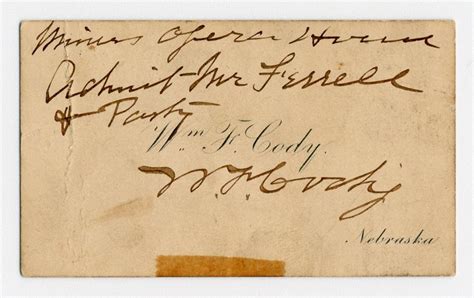 Miners Opera House
Admit Mr Ferrell
& Party
Wm. F. Cody.
W. F. Cody
Nebraska